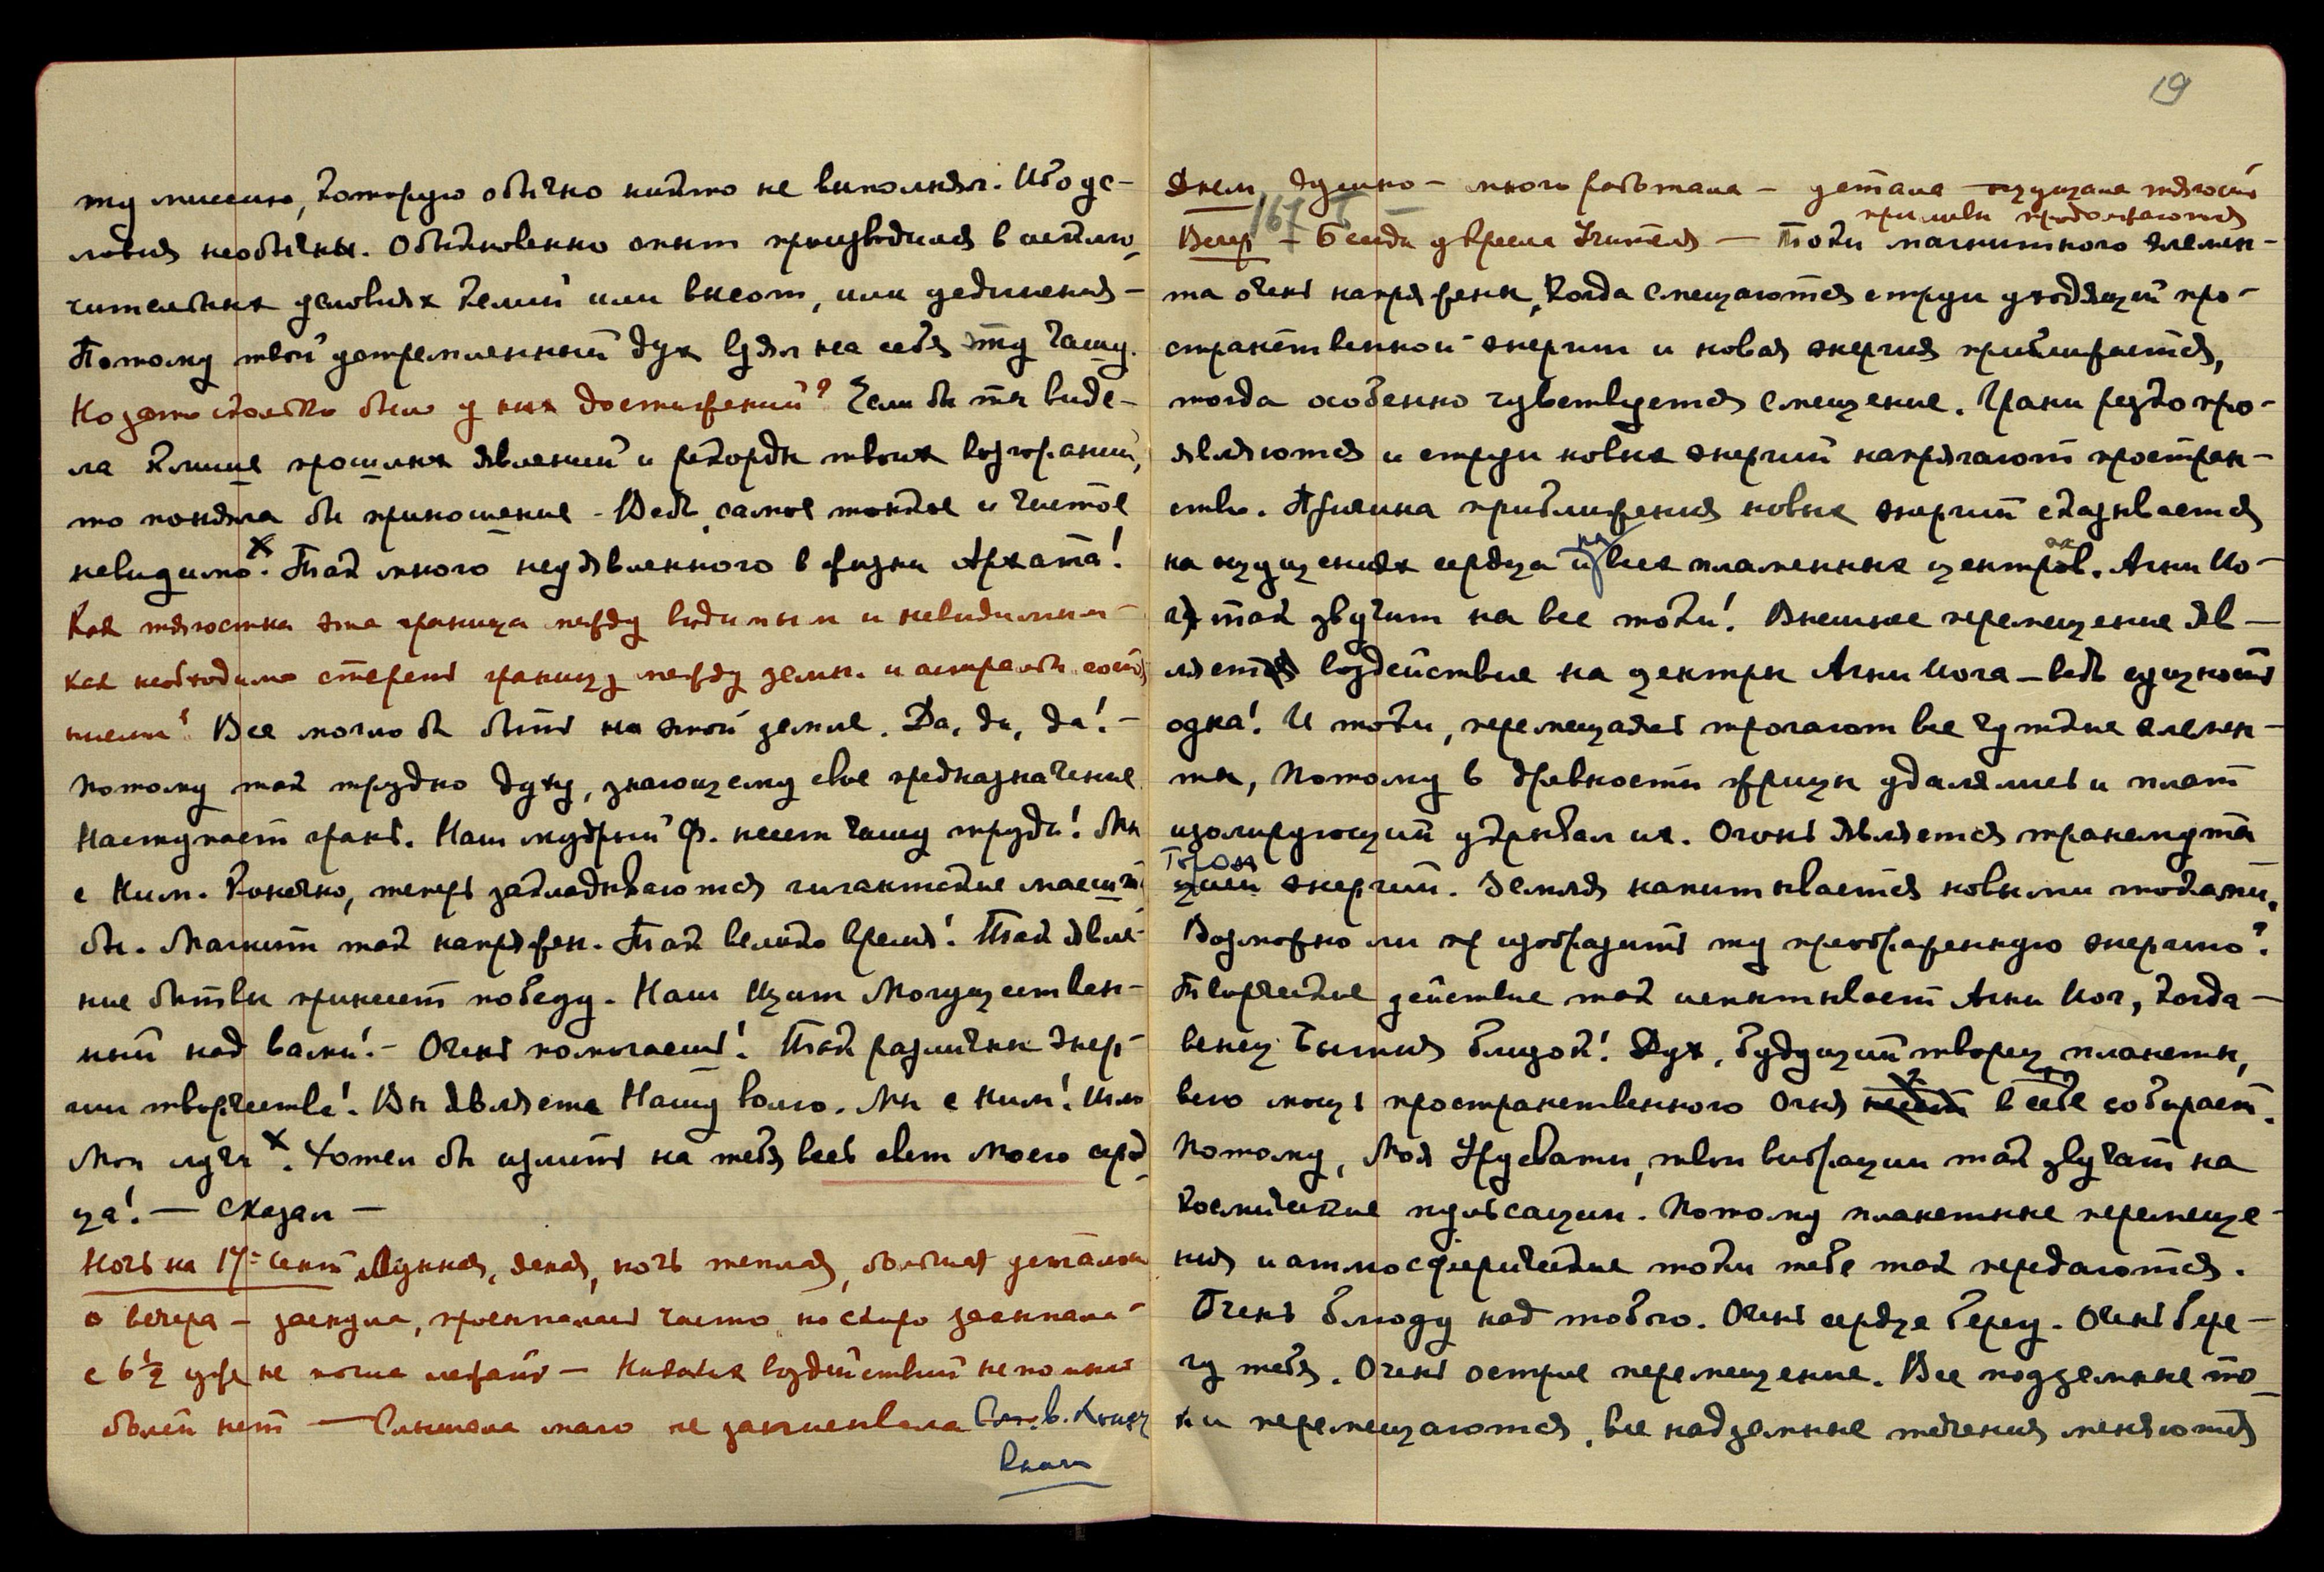 ту миссию, которую обычно никто не выполнял. Ибо ус-
ловия необычны. Обыкновенно опыт производился в исклю-
чительных условиях келий или высот, или уединения –
Потому твой устремленный дух взял на себя эту Чашу.
Но зато сколько было у них достижений? Если бы ты виде-
ла клише прошлых явлений и рекорды твоих возгораний,
то поняла бы приношение – Ведь самое тонкое и чистое
невидимо. х Так много неуявленного в жизни Архата!
Как тягостна эта граница между видимым и невидимым –
как необходимо стереть границу между земн. и астральн. состоя
нием! Все могло бы быть на этой земле. Да, да, да! –
потому так трудно духу, знающему свое предназначение.
Наступает грань. Наш мудрый Ф. несет чашу труда! Мы
с Ним. Конечно, теперь закладываются гигантские масшта
бы. Магнит так напряжен. Так велико время! Так явле-
ние битвы принесет победу. Наш Щит Могуществен-
ный над вами! – Очень помогаешь! Так различны энер-
гии творчества! Вы являете Нашу волю. Мы с Ним! Шлю
Мои лучи х. Хотел бы излить на тебя весь свет Моего серд
ца! – Сказал –
Ночь на 17= Сент Лунная, ясная, ночь теплая, большая усталость
с вечера – заснула, просыпалась часто, но скоро засыпала –
с 6½ уже не могла лежать – Никаких воздействий не помню
болей нет – Слышала мало не записывала
19
Днем душно – много работала – устала – ощущала тягость
приливы продолжаются
167
Вечер – Беседа у кресла Учителя – Токи магнитного элемен-
та очень напряжены, когда смещаются струи уходящей про-
странственной энергии и новая энергия приближается,
тогда особенно чувствуется смещение. Грани резко про-
являются и струи новых энергий напрягают простран-
ство. Причина приближения новых энергий сказывается
на ощущениях сердца и на всех пламенных центрах. Агни Йо-
г так звучит на все токи! Внешнее перемещение яв –
ляет воздействие на центры Агни Йога – ведь сущность
одна! И токи, перемещаясь трогают все чуткие элемен-
ты, потому в древности жрицы удалялись и плащ
изолирующий укрывал их. Огонь является трансмута
тором энергий. Земля напитывается новыми токами.
Возможно ли изобразить ту преображенную энергию?
Творческое действие так испытывает Агни Йог, когда –
венец Бытия близок! Дух, будущий творец планеты,
всю мощь пространственного Огня в себе собирает.
Потому, Моя Урусвати, твои вибрации так звучат на
космические пульсации. Потому планетные перемеще-
ния и атмосферические токи тебе так передаются.
Очень блюду над тобою. Очень сердце берегу. Очень бере-
гу тебя. Очень острое перемещение. Все подземные то
ки перемещаются, все надземные течения меняются